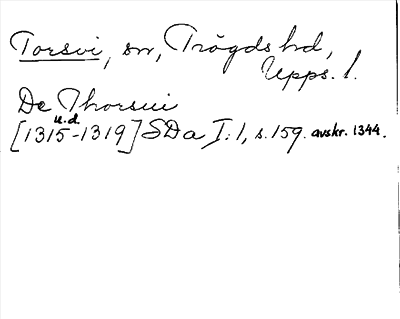 Torsvi, sn, Trögds hd,
Upps. l.
De Thorsui
u.d.
[1315-1319] SDa I:1, s. 159. avskr. 1344.